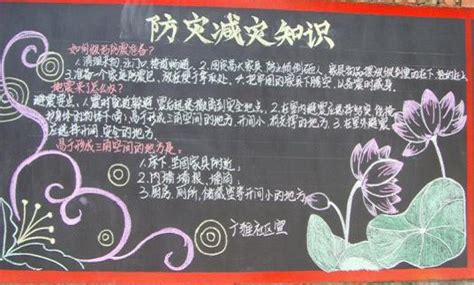 防灾减灾知识
如何做好防震准备?
1.清理杂物,让门口、楼道畅通。2.固定高大家具,防止倾倒砸人,家具物品摆放做到重的在下,轻的在上。
3.准备一个家庭防震包,放在便于拿取处。4.把牢固的家具下腾空,以备震时藏身。
地震来了怎么办?
避震要点:1.震时就近躲避,震后迅速撤离到安全地点。2.在室内避震应选择结实、能掩
护身体的物体下(旁)、易于形成三角空间的地方,开间小、有支撑的地方。3.在室外避震
应选择开阔、安全的地方。
易于形成三角空间的地方是。
1.床下、坚固家具附近;
2.内墙墙根、墙角
3.厨房、厕所、储藏室等开间小的地方
社区宣